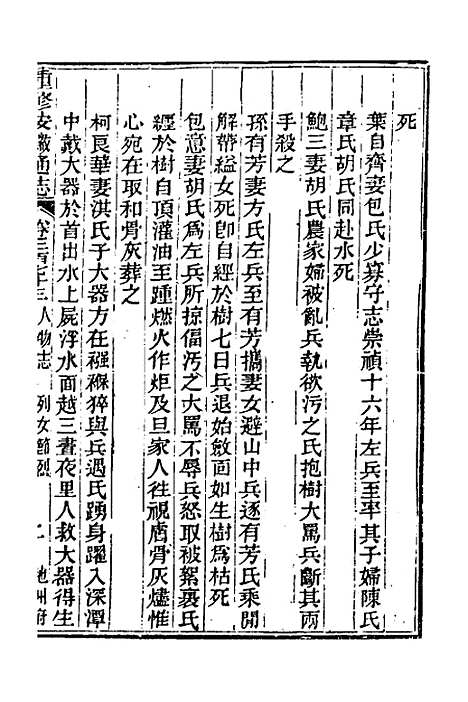 死
葉自齊妾包氏少寡守志崇禎十六年左兵至率其子婦陳氏
章氏胡氏同赴水死
鮑三妻胡氏農家婦被亂兵執欲污之氏抱樹大罵兵斷其兩
手殺之
孫有芳妻方氏左兵至有芳攜妻女避山中兵逐有芳氏乘閒
解帶縊女死卽自經於樹七日兵退始斂面如生樹爲枯死
包意妻胡氏爲左兵所掠偪污之大罵不辱兵怒取被絮裹氏
經於樹自頂灌油至踵燃火作炬及旦家人往視膚骨灰燼惟
心宛在取和骨灰葬之
柯良華妻淇氏子大器方在襁褓猝與兵遇氏踴身躍入深潭
中戴大器於首出水上屍浮水面越三晝夜里人救大器得生
重修安徽通志 卷二百七十三 人物志 列女節烈 七 池州府